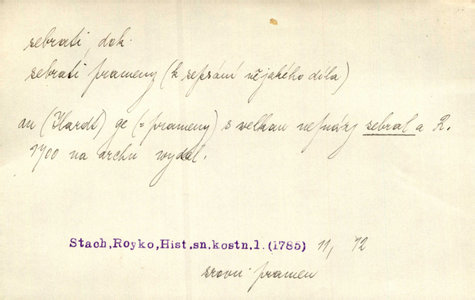 sebrati, dok.
sebrati prameny (k sepsání nějakého díla)
on (Hardt) ge (= prameny) s welkau nesnázj sebral a L.
1700 na archu wydal.
Stach,Royko,Hist.sn.kostn.1.(1785) 11, 72
srovn. pramen